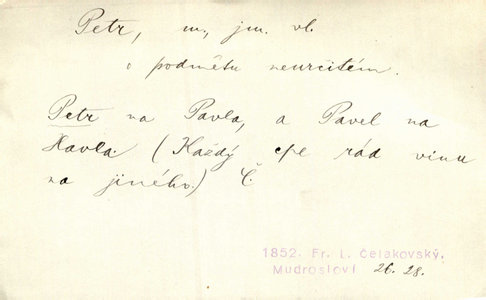 Petr, m., jm. vl.
o podmětu neurcitém.
Petr na Pavla, a Pavel na
Havla. (Každý cpe rád vinu
na jiného.) Č
1852. Fr. L. Čelakovský,
Mudrosloví 26. 28.